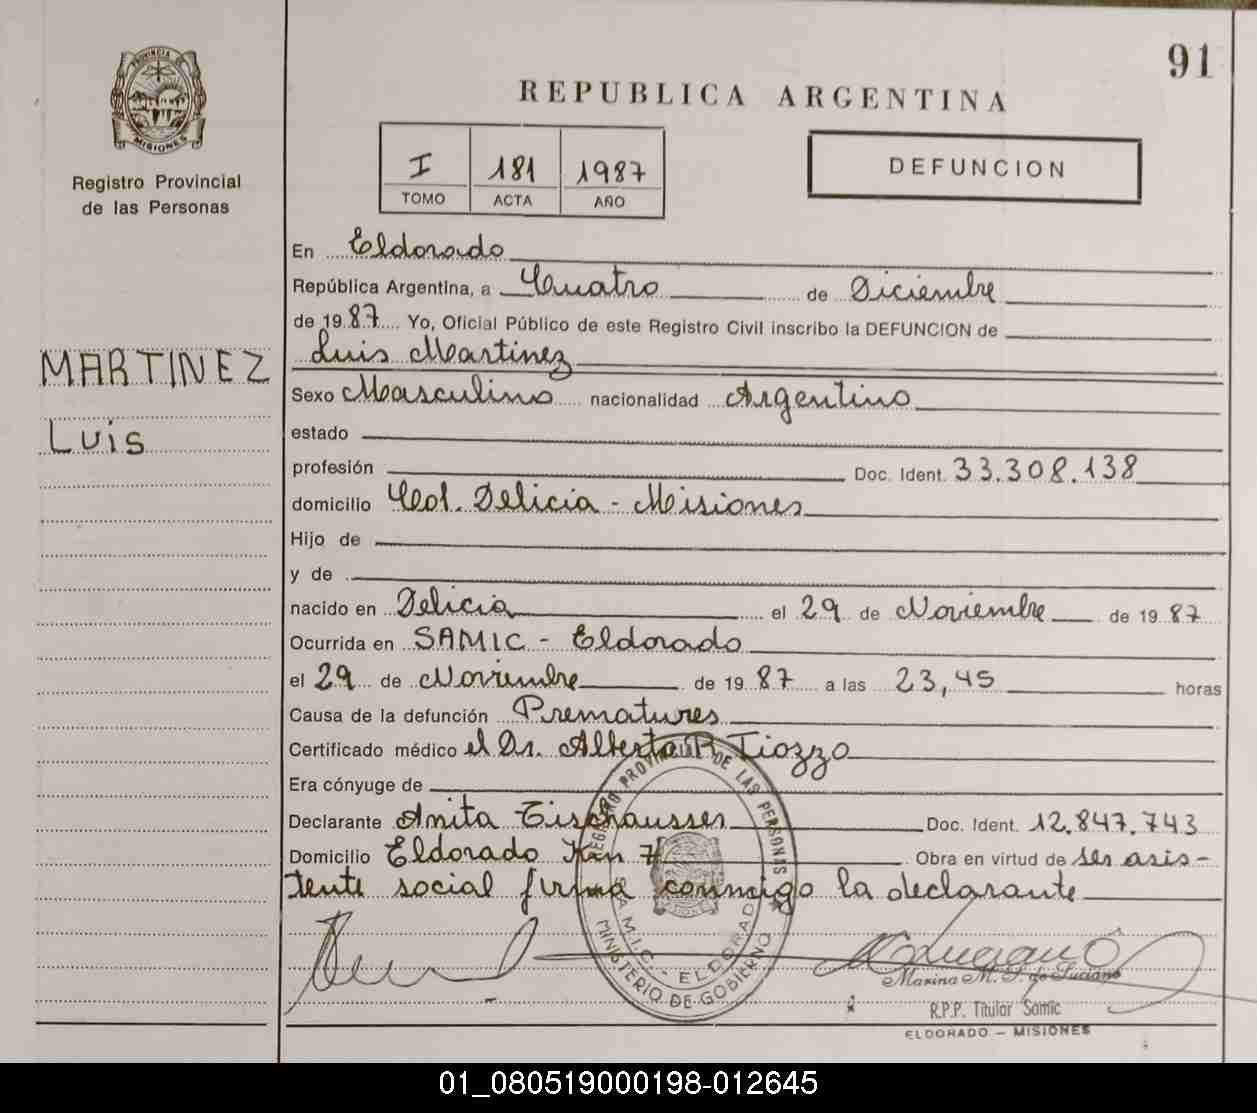 91
PROVINCIA DE
MISIONES
Registro Provincial
de las Personas
MARTINEZ
Luis
REPUBLICA ARGENTINA
I 181 1987
TOMO ACTA AÑO
DEFUNCION
En Eldorado
República Argentina, a Cuatro de Diciembre
de 1987 Yo, Oficial Público de este Registro Civil inscribo la DEFUNCION de
Luis Martinez
Sexo Masculino nacionalidad Argentino
estado
profesión Doc. Ident. 33.308.138
domicilio Col. Delicia - Misiones
Hijo de
y de
nacido en Delicia el 29 de Noviembre de 1987
Ocurrida en SAMIC - Eldorado
el 29 de Noviembre de 1987 a las 23,45 horas
Causa de la defunción Prematures
Certificado médico el Dr. Alberto R Tiozzo
Era cónyuge de
Declarante Anita Tischausser Doc. Ident. 12.847.743
Domicilio Eldorado Km 7 Obra en virtud de ser asis-
tente social firma conmigo la declarante
REGISTRO PROVINCIAL DE LAS PERSONAS
S.A.M.I.C. - ELDORADO
MINISTERIO DE GOBIERNO
Marina M. de Luciano
R.P.P. Titular Samic
ELDORADO - MISIONES
01_080519000198-012645